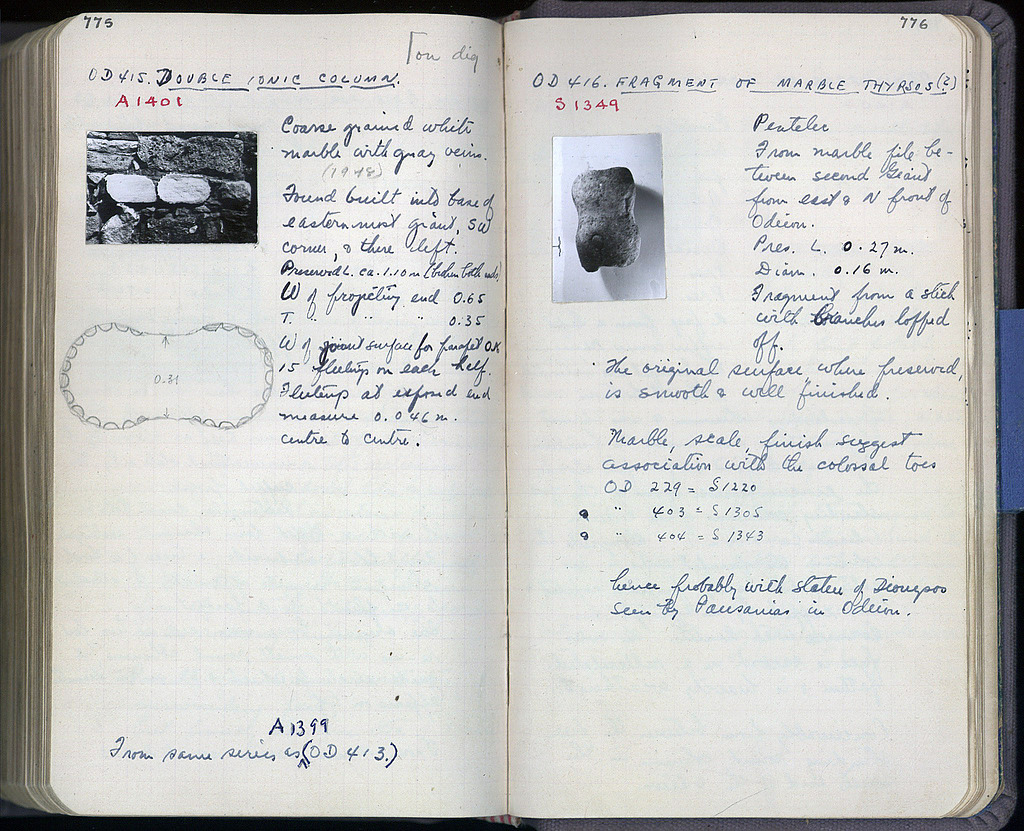 775
[on dig
OD 415. DOUBLE IONIC COLUMN.
A 1401
Coarse grained white
marble with gray veins.
(1948)
Found built into base of
easternmost giant, SW
corner, & there left.
Preserved L. ca. 1.10 m (broken both ends)
W of projecting end 0.65
T. " " " 0.35
W of joint surface for parapet
15 flutings on each half.
Flutings at exposed end
measure 0.046 m.
centre to centre.
0.31
A 1399
From same series as (OD 413.)
776
OD 416. FRAGMENT OF MARBLE THYRSOS (?)
S 1349
Pentelic
From marble pile be-
tween second Giant
from east & N front of
Odeion.
Pres. L. 0.27 m.
Diam. 0.16 m.
Fragment from a stick
with branches lopped
off.
The original surface where preserved,
is smooth & well finished.
Marble, scale, finish suggest
association with the colossal toes
OD 229 = S 1220
" 403 = S 1305
" 404 = S 1343
hence probably with statue of Dionysos
seen by Pausanias in Odeion.